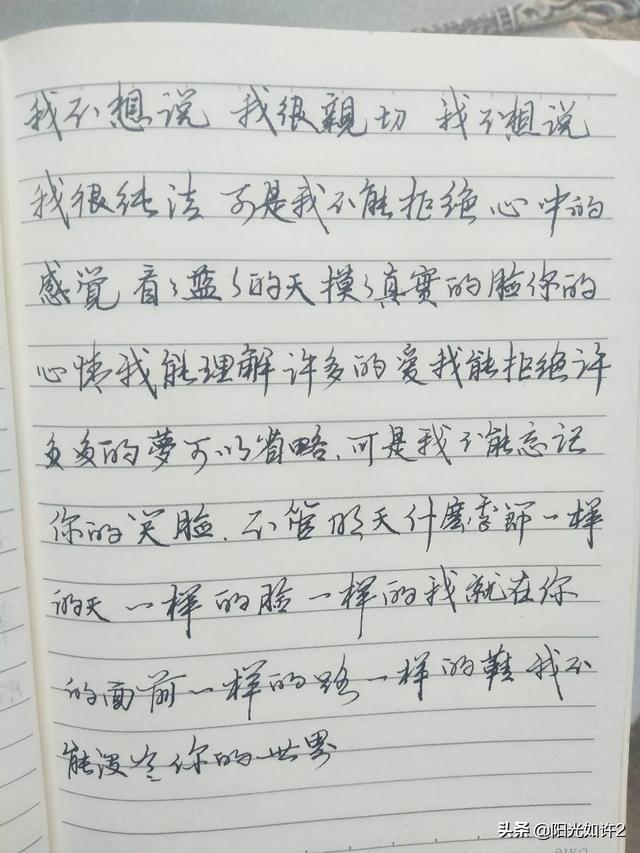 我不想说 我很親切 我不想说
我很纯洁 可是我不能拒绝心中的
感觉 看々蓝々的天摸々真实的脸你的
心情我能理解许多的爱我能拒绝许
多多的夢可以省略,可是我不能忘记
你的笑脸.不管明天什麽季節一样
的天 一样的脸一样的我就在你
的面前一样的路一样的鞋我不
能没 你的世界
头条 @阳光如许2